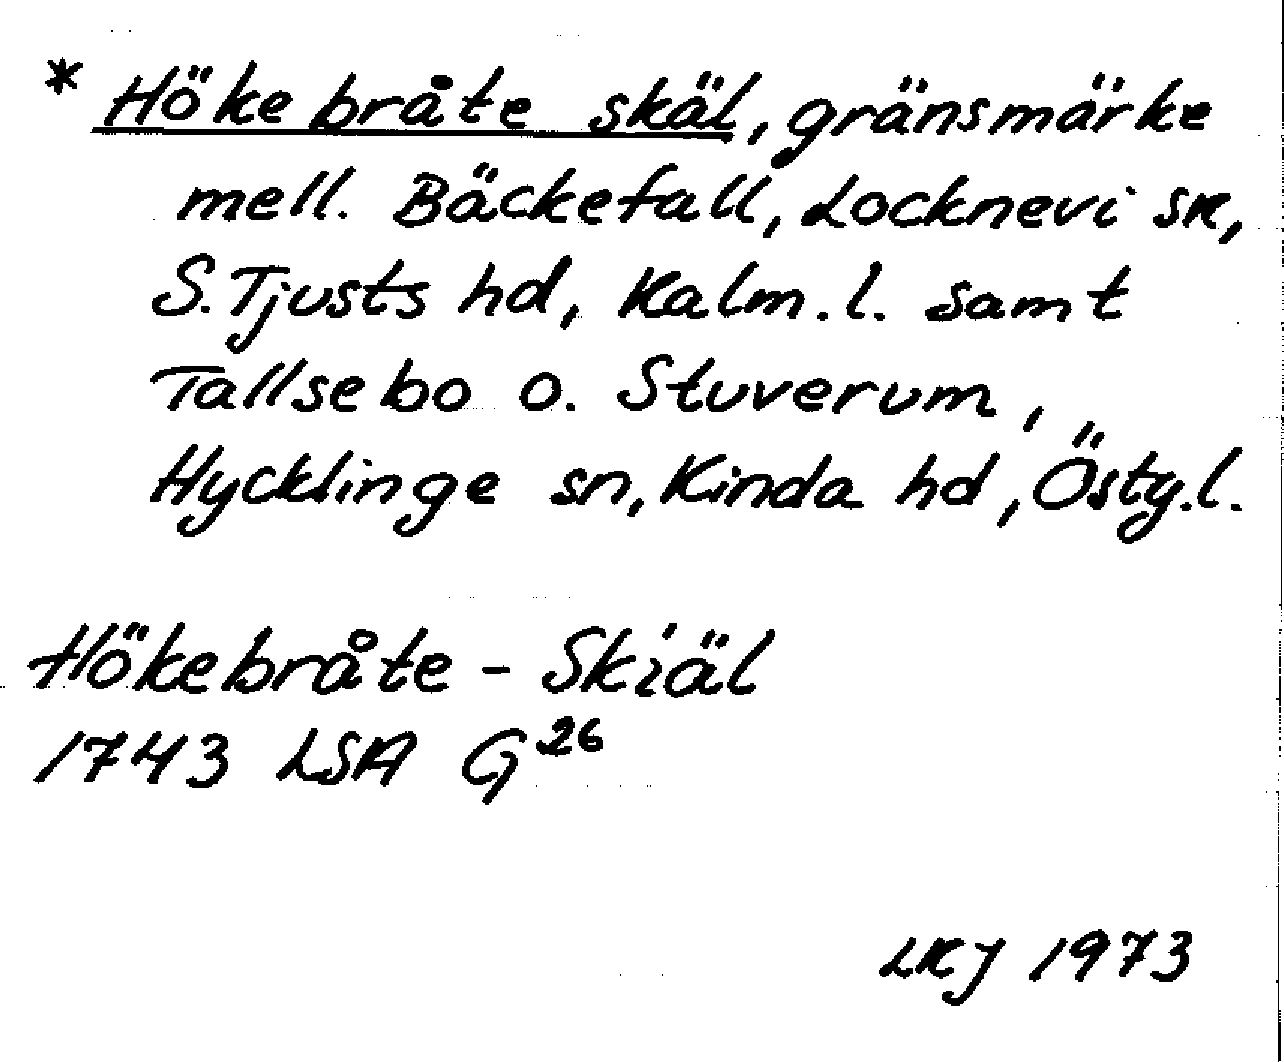 * Hökebråte skäl, gränsmärke
mell. Bäckefall, Locknevi sn,
S. Tjusts hd, Kalm. l. samt
Tallsebo o. Stuverum,
Hycklinge sn, Kinda hd, Östg. l.
Hökebråte - Skiäl
1743 LSA G26
LKJ 1973